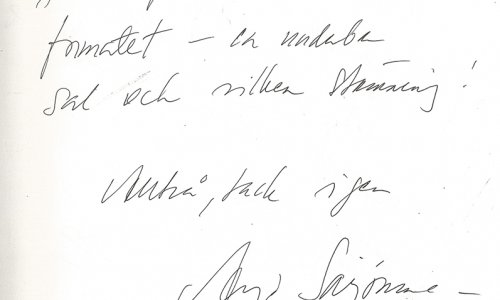 formatet – en underbar
sal och vilken stämning!
Alltså, tack igen
Arja Saijonmaa